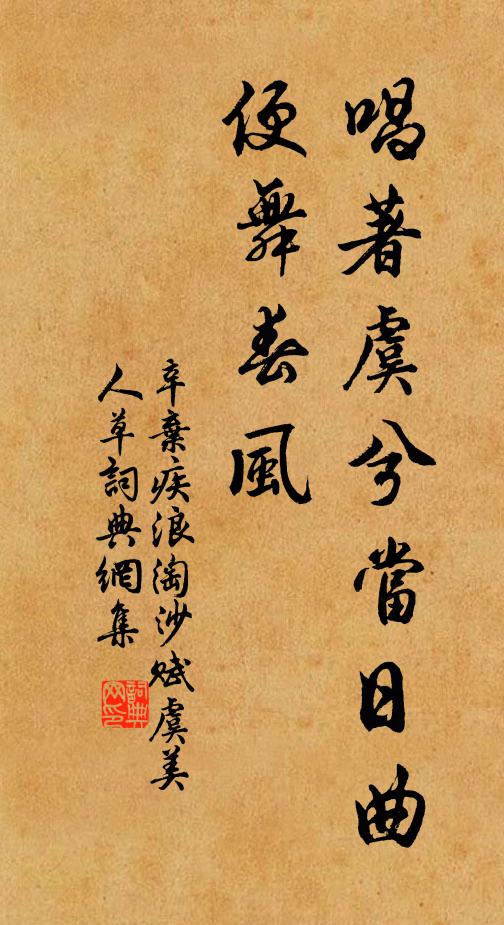 唱著虞兮當日曲
便舞春風
辛棄疾浪淘沙賦虞美
人草詞典網集
詞典
网印